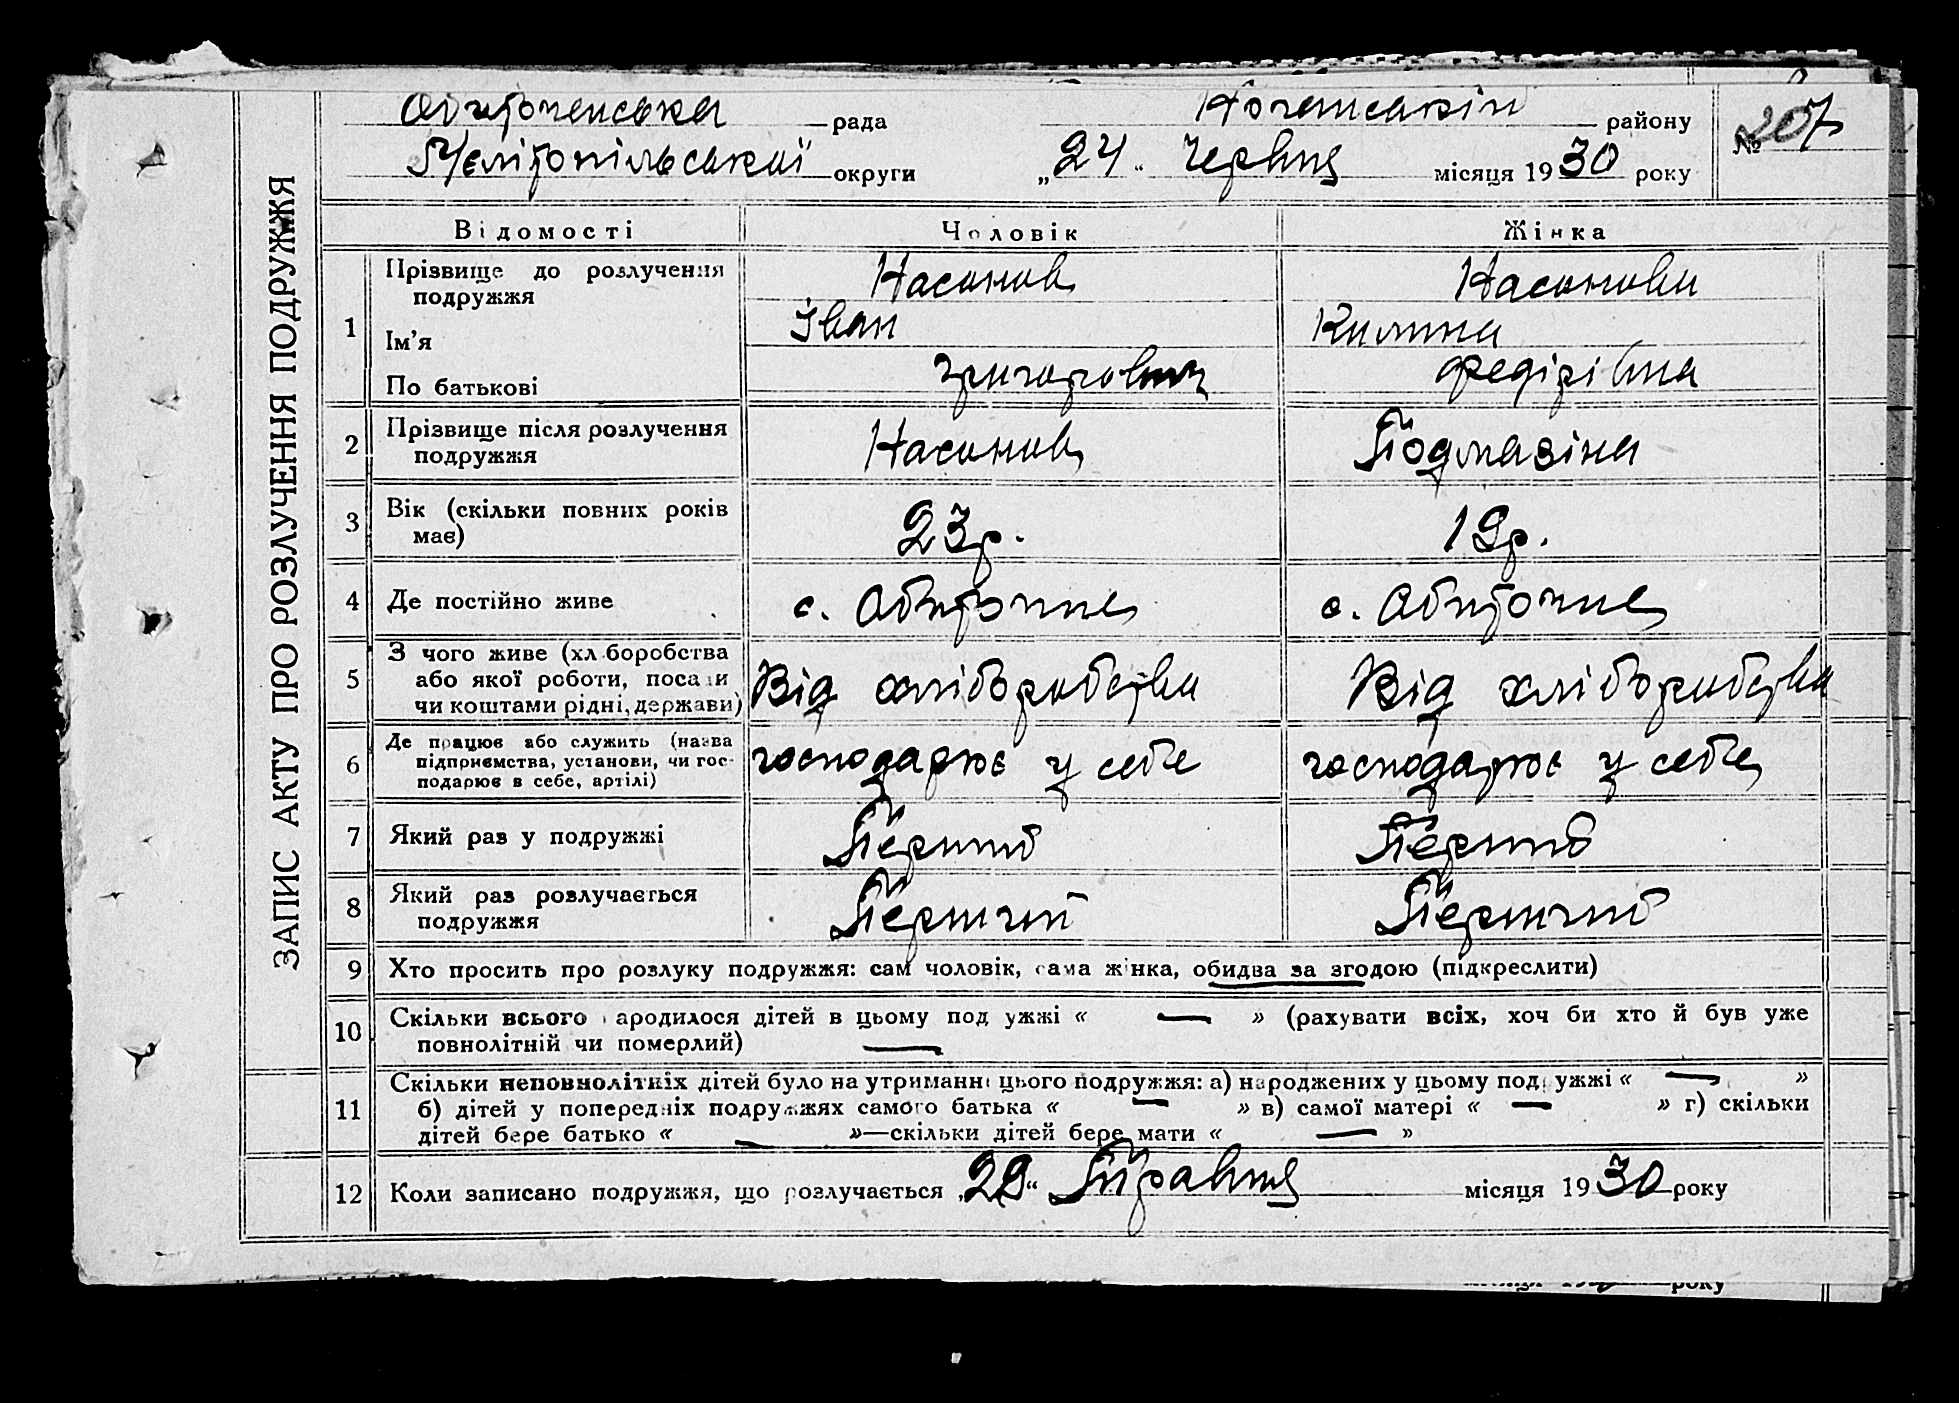 ЗАПИС АКТУ ПРО РОЗЛУЧЕННЯ ПОДРУЖЖЯ
Обиточенська рада Ногайський району № 207
Мелітопільської округи „24“ Червня місяця 1930 року
Відомості Чоловік Жінка
1 Прізвище до розлучення подружжя Насонов Насонова
Ім'я Іван Килина
По батькові Григорович Федірівна
2 Прізвище після розлучення Насонов Подмазіна
подружжя
3 Вік (скільки повних років 23 р. 19 р.
має)
4 Де постійно живе с. Обиточне с. Обиточне
5 З чого живе (хліборобства
або якої роботи, посади Від хліборобства Від хліборобства
чи коштами рідні, держави)
6 Де працює або служить (назва
підприємства, установи, чи гос- господарює у себе господарює у себе
подарює в себе, артілі)
7 Який раз у подружжі Перший Перший
8 Який раз розлучається Перший Перший
подружжя
9 Хто просить про розлуку подружжя: сам чоловік, сама жінка, обидва за згодою (підкреслити)
10 Скільки всього народилося дітей в цьому подружжі « — » (рахувати всіх, хоч би хто й був уже
повнолітній чи померлий) —
11 Скільки неповнолітніх дітей було на утриманні цього подружжя: а) народжених у цьому подружжі « — »
б) дітей у попередніх подружжях самого батька « — » в) самої матері « — » г) скільки
дітей бере батько « — »—скільки дітей бере мати « — »
12 Коли записано подружжя, що розлучається „29“ Травня місяця 1930 року
року